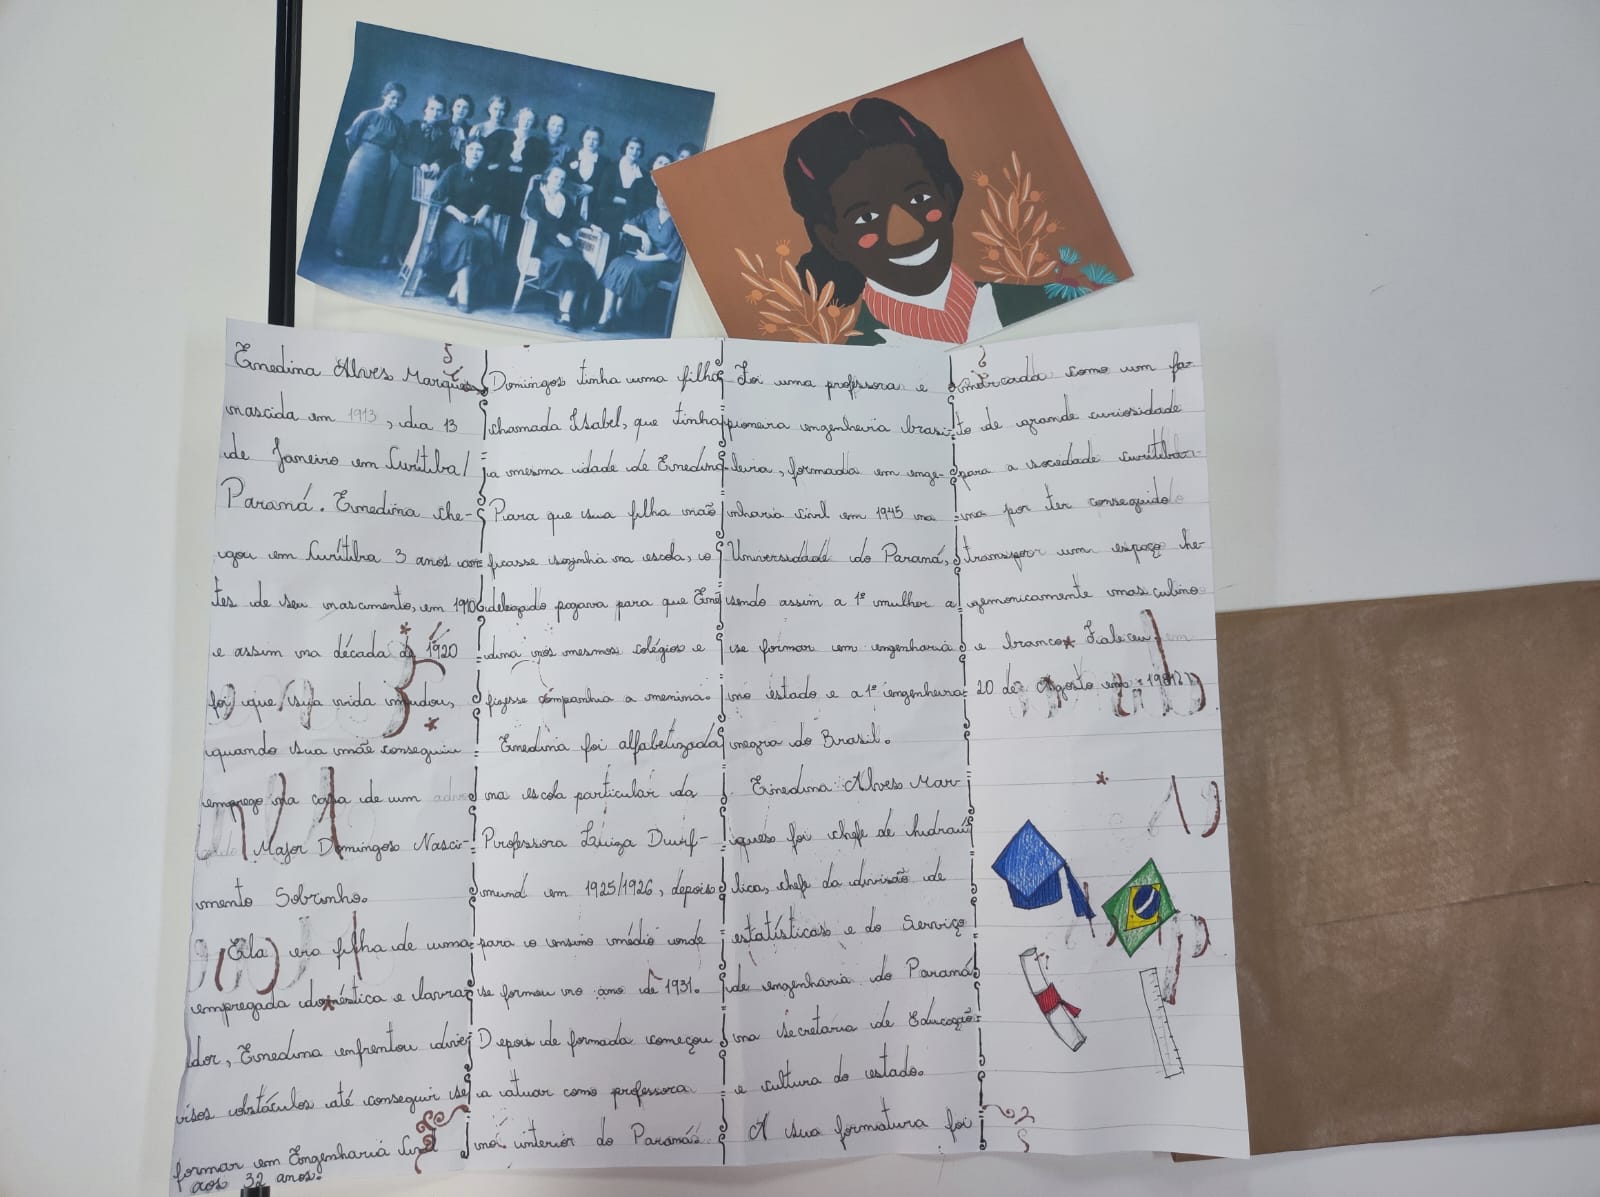 Enedina Alves Marques,
nascida em 1913, dia 13
de Janeiro em Curitiba/
Paraná. Enedina che-
gou em Curitiba 3 anos an
tes de seu nascimento, em 1910
e assim na década de 1920
foi que sua vida mudou,
quando sua mãe conseguiu
emprego na casa de um
Major Domingos Nasci-
mento Sobrinho.
Ela era filha de uma
empregada doméstica e lavra
dor, Enedina enfrentou diver
visos obstáculos até conseguir se
formar em Engenharia Civil
aos 32 anos.
Domingos tinha uma filha
chamada Isabel, que tinha
a mesma idade de Enedina
Para que sua filha não
ficasse sozinha na escola, o
delegado pagava para que Ene
dina nos mesmos colégios e
fizesse companhia a menina.
Enedina foi alfabetizada
na escola particular da
Professora Luiza Dwrf-
mund em 1925/1926, depois
para o ensino médio onde
se formou no ano de 1931.
Depois de formada começou
a atuar como professora
no interior do Paraná.
Foi uma professora e
pioneira engenheira brasi-
leira, formada em enge-
nharia civil em 1945 na
Universidade do Paraná,
sendo assim a 1ª mulher a
se formar em engenharia
no estado e a 1ª engenheira
negra do Brasil.
Enedina Alves Mar-
ques foi chefe de hidraú
lica, chefe da divisão de
estatísticas e do Serviço
de engenharia do Paraná
na secretaria de Educação
e cultura do estado.
A sua formatura foi
marcada como um fa-
to de grande curiosidade
para a sociedade curitiba-
na por ter conseguido
transpor um espaço he-
gemonicamente masculino
e branco. Faleceu em
20 de Agosto em 1981